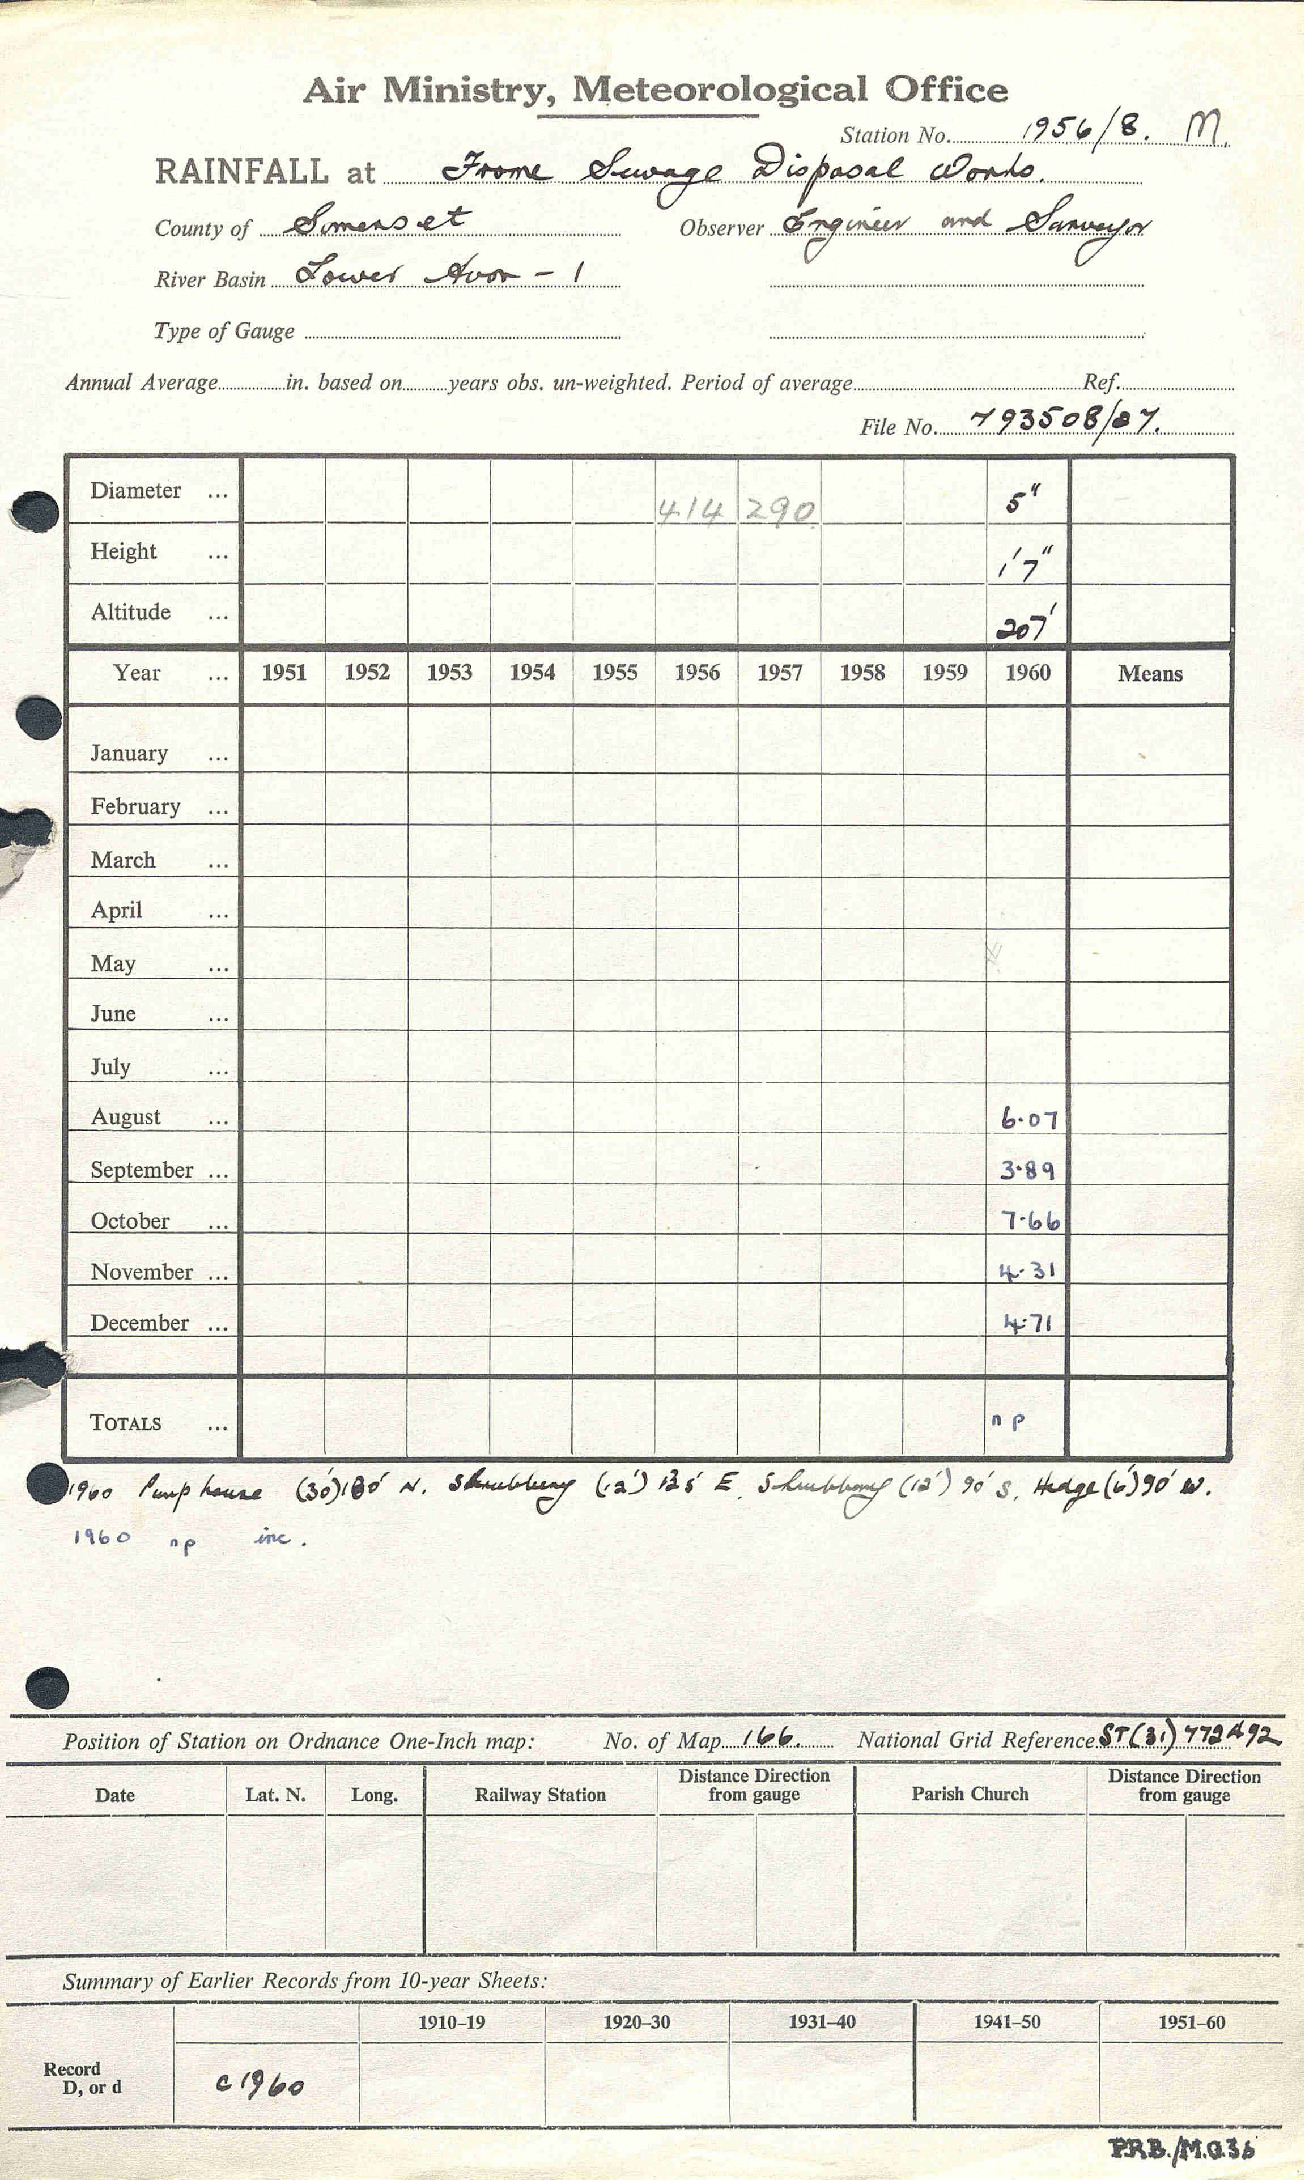 Air Ministry, Meteorological Office
Station No. 1956/8. M
RAINFALL at Frome Sewage Disposal Works.
County of Somerset Observer Engineer and Surveyor
River Basin Lower Avon - 1
Type of Gauge
Annual Average in. based on years obs. un-weighted. Period of average Ref.
File No. 793508/87.
Diameter ... 414 290 5"
Height ... 1'7"
Altitude ... 207'
Year ... 1951 1952 1953 1954 1955 1956 1957 1958 1959 1960 Means
January ...
February ...
March ...
April ...
May ...
June ...
July ...
August ... 6.07
September ... 3.89
October ... 7.66
November ... 4.31
December ... 4.71
TOTALS ... n p
1960 Pump house (30') 180' N. Shrubbery (12') 135' E. Shrubbery (12') 90' S. Hedge (6') 90' W.
1960 np inc.
Position of Station on Ordnance One-Inch map: No. of Map 166 National Grid Reference ST (31) 772492
Date Lat. N. Long. Railway Station Distance Direction from gauge Parish Church Distance Direction from gauge
Summary of Earlier Records from 10-year Sheets:
1910–19 1920–30 1931–40 1941–50 1951–60
Record
D, or d c1960
P.R.B./M.O.36